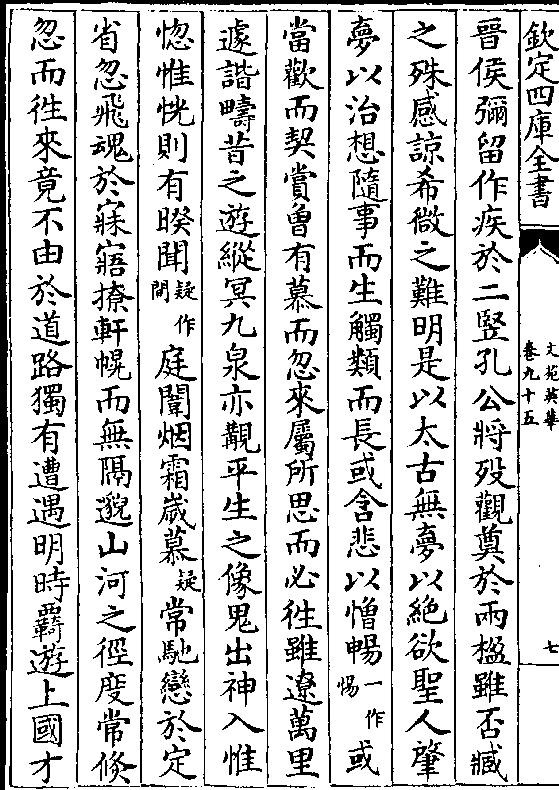 欽定四庫全書
文苑英華
卷九十五
七
晉侯彌留作疾於二竪孔公將殁觀奠於兩楹雖否臧
之殊感諒希微之難明是以太古無夢以絶欲聖人肇
夢以治想隨事而生觸類而長或含悲以憎暢一作惕或
當歡而契賞魯有慕而忽來屬所思而必徃雖遼萬里
遽諧疇昔之遊縱冥九泉亦覩平生之像鬼出神入惟
惚惟恍則有暌聞疑作間庭闈烟霜歲慕疑常馳戀於定
省忽飛魂於寐寤撩軒幌而無隔邈山河之徑度常倐
忽而徃來竟不由於道路獨有遭遇明時覊遊上國才